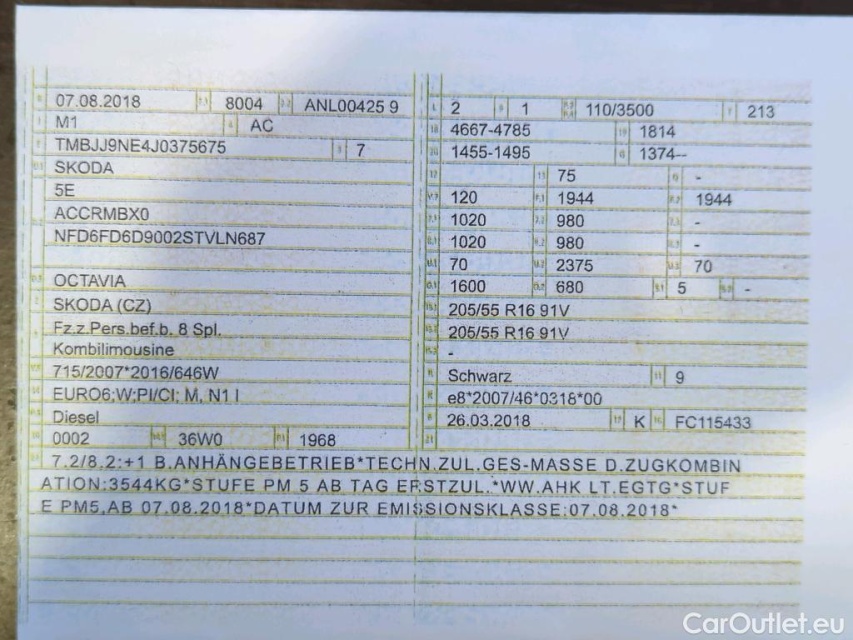 07.08.2018 8004 ANL00425 9
M1 AC
TMBJJ9NE4J0375675 7
SKODA
5E
ACCRMBX0
NFD6FD6D9002STVLN687
OCTAVIA
SKODA (CZ)
Fz.z.Pers.bef.b. 8 Spl.
Kombilimousine
715/2007*2016/646W
EURO6;W;PI/CI; M, N1 I
Diesel
0002 36W0 1968
2 1 110/3500 213
4667-4785 1814
1455-1495 1374--
75 -
120 1944 1944
1020 980 -
1020 980 -
70 2375 70
1600 680 5 -
205/55 R16 91V
205/55 R16 91V
-
Schwarz 9
e8*2007/46*0318*00
26.03.2018 K FC115433
7.2/8.2:+1 B.ANHÄNGEBETRIEB*TECHN.ZUL.GES-MASSE D.ZUGKOMBIN
ATION:3544KG*STUFE PM 5 AB TAG ERSTZUL.*WW.AHK LT.EGTG*STUF
E PM5,AB 07.08.2018*DATUM ZUR EMISSIONSKLASSE:07.08.2018*
CarOutlet.eu